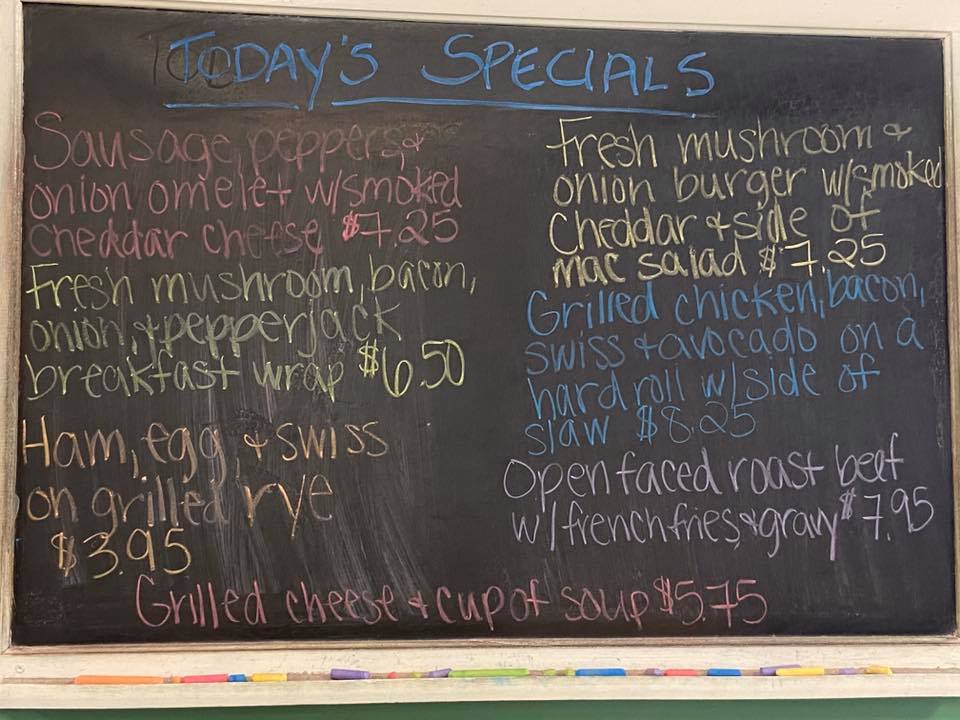 TODAY'S SPECIALS
Sausage, peppers &
onion omelet w/smoked
cheddar cheese $7.25
Fresh mushroom, bacon,
onion, & pepperjack
breakfast wrap $6.50
Ham, egg, & swiss
on grilled rye
$3.95
Fresh mushroom &
onion burger w/smoked
Cheddar & side of
mac salad $7.25
Grilled chicken, bacon,
swiss & avocado on a
hard roll w/side of
slaw $8.25
Open faced roast beef
w/french fries & gravy $7.95
Grilled cheese & cup of soup $5.75